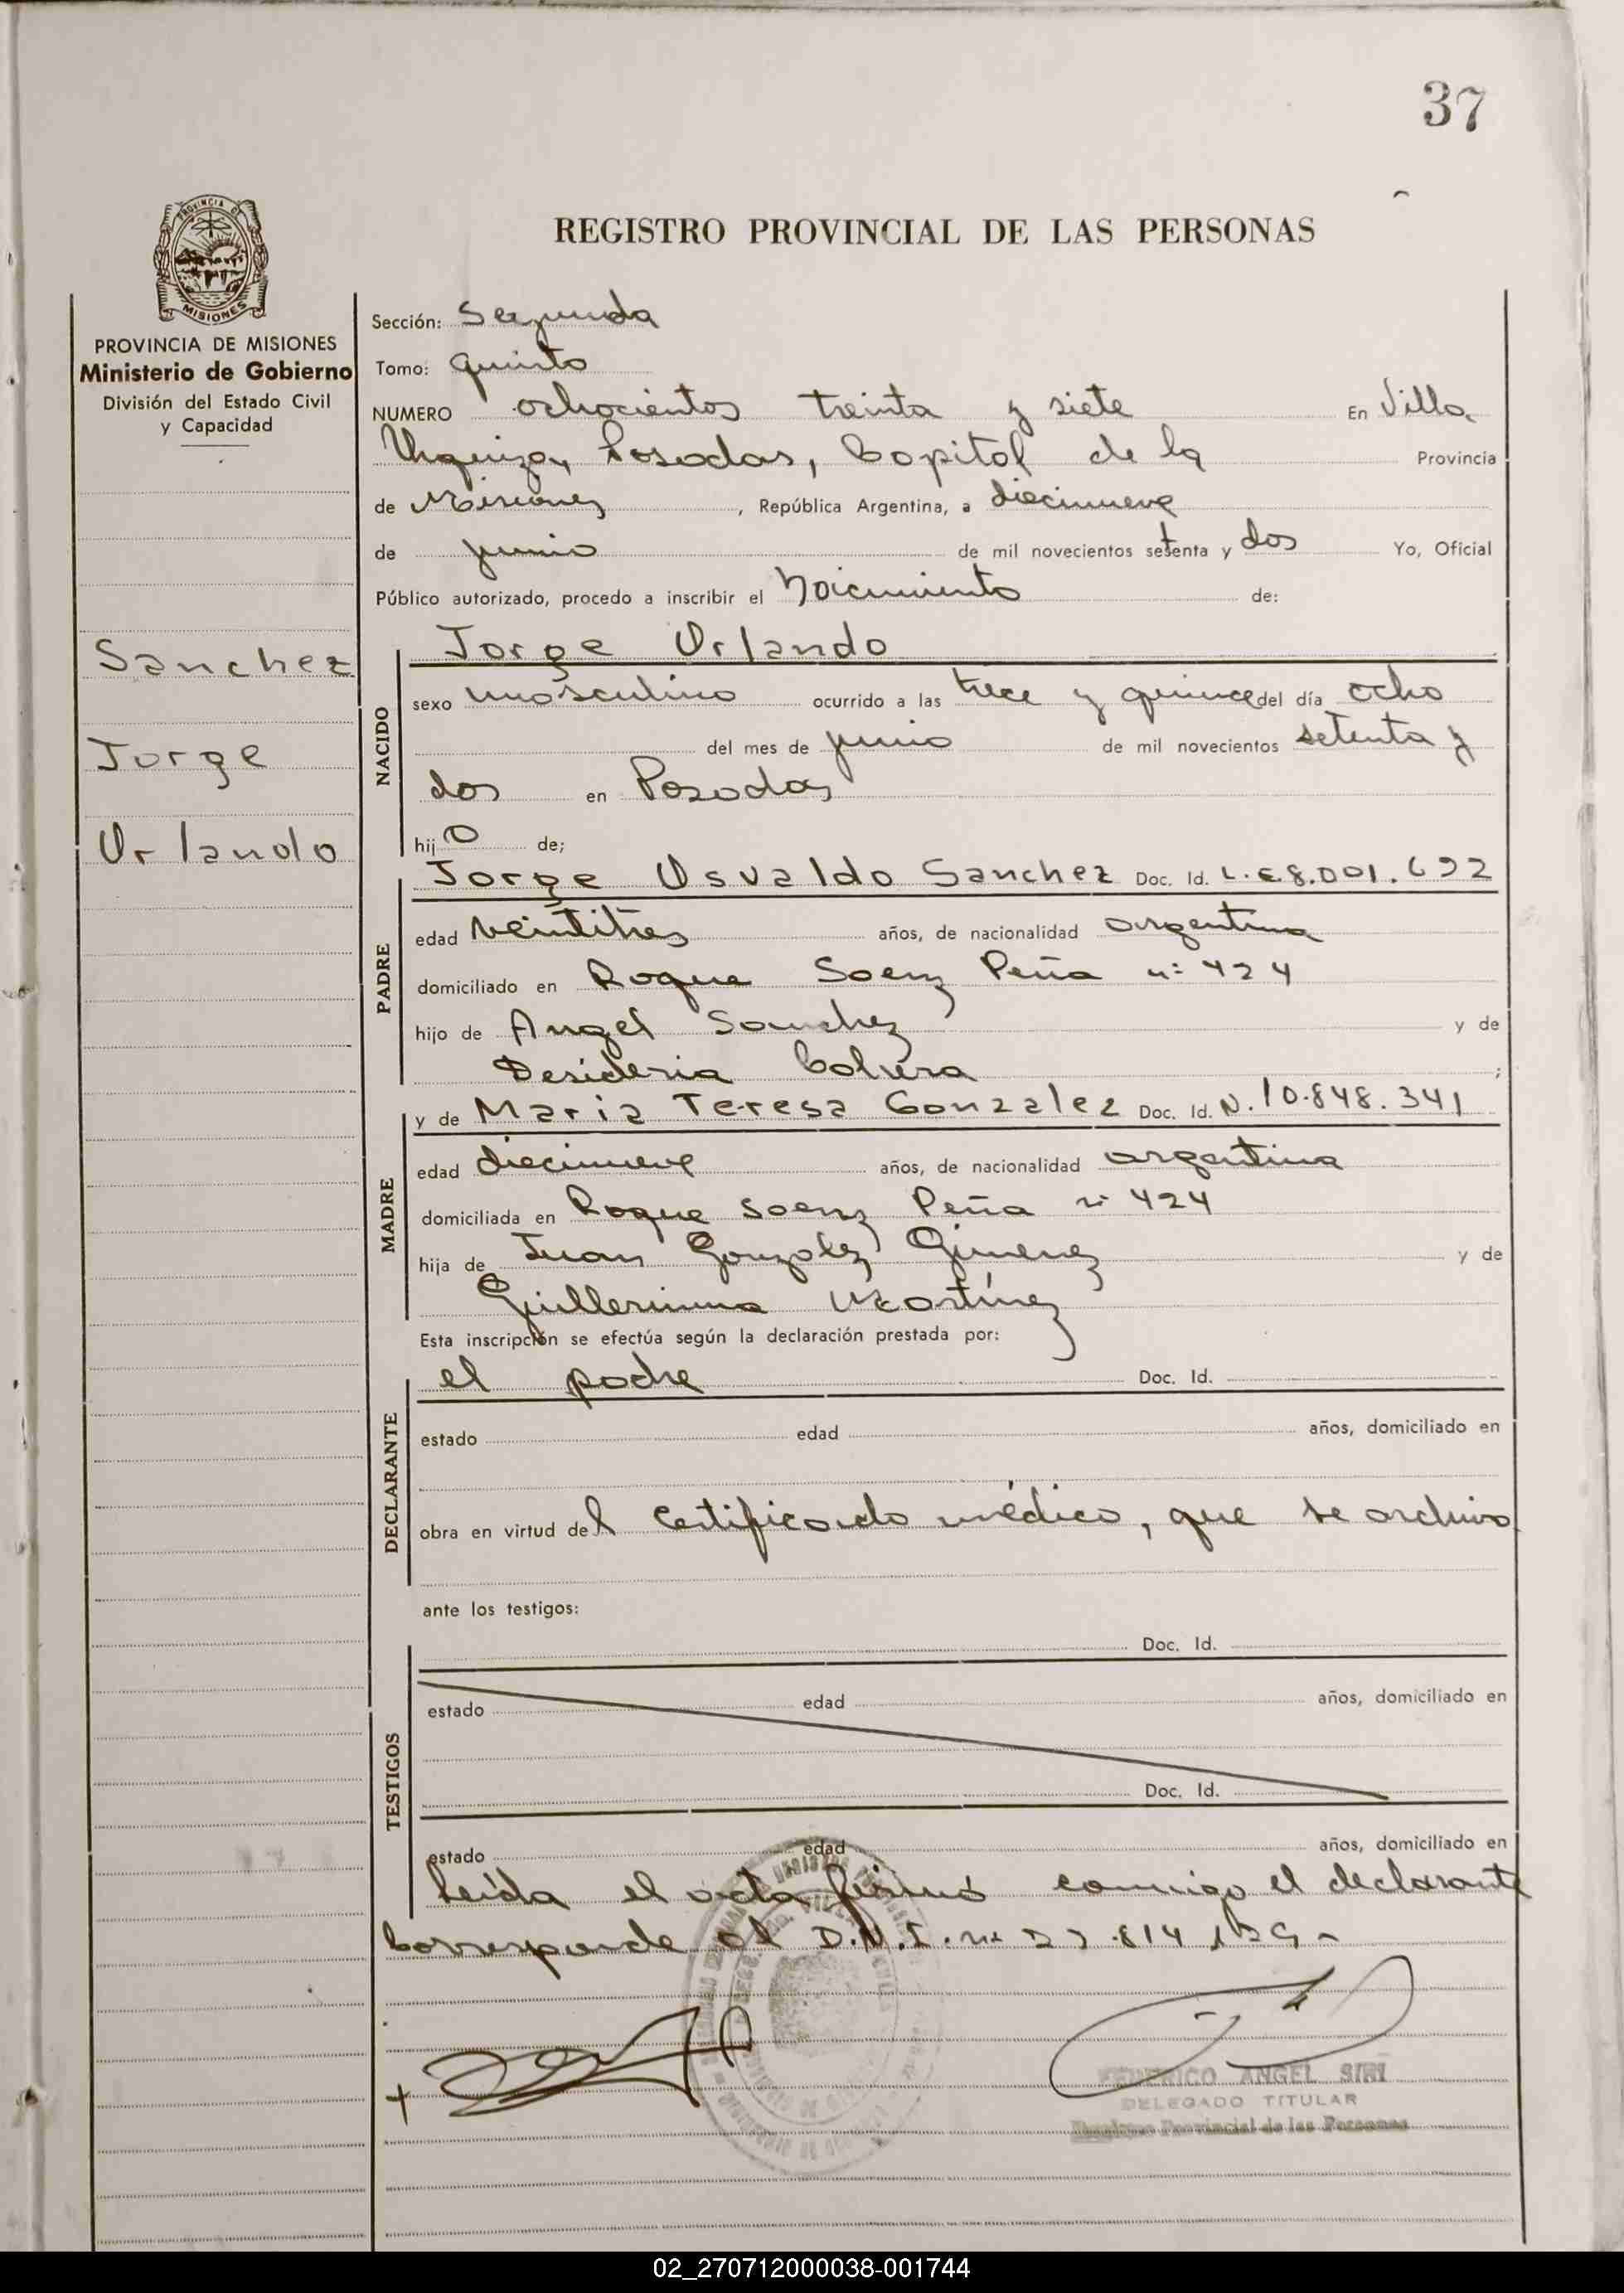 37
REGISTRO PROVINCIAL DE LAS PERSONAS
PROVINCIA DE MISIONES
Ministerio de Gobierno
División del Estado Civil
y Capacidad
Sanchez
Jorge
Orlando
Sección: Segunda
Tomo: quinto
NUMERO ochocientos treinta y siete En Villa
Urquiza, Posadas, Capital de la Provincia
de Misiones, República Argentina, a diecinueve
de junio de mil novecientos setenta y dos Yo, Oficial
Público autorizado, procedo a inscribir el Nacimiento de:
NACIDO
Jorge Orlando
sexo masculino ocurrido a las trece y quince del día ocho
del mes de junio de mil novecientos setenta y
dos en Posadas
hijo de;
PADRE
Jorge Osvaldo Sanchez Doc. Id. L.E 8.001.692
edad veintitres años, de nacionalidad argentina
domiciliado en Roque Saenz Peña nº 424
hijo de Angel Sanchez y de
Desideria ;
MADRE
y de Maria Teresa Gonzalez Doc. Id. N. 10.848.341
edad diecinueve años, de nacionalidad argentina
domiciliada en Roque Saenz Peña nº 424
hija de Juan Gonzalez Gimenez y de
Guillermina Martínez
Esta inscripción se efectúa según la declaración prestada por:
DECLARANTE
el padre Doc. Id.
estado edad años, domiciliado en
obra en virtud del certificado médico, que se archiva
ante los testigos:
TESTIGOS
Doc. Id.
estado edad años, domiciliado en
Doc. Id.
estado edad años, domiciliado en
Leída el acta firmó conmigo el declarante
Corresponde al D.N.I. nº 814
FEDERICO ANGEL SIRI
DELEGADO TITULAR
Registro Provincial de las Personas
02_270712000038-001744